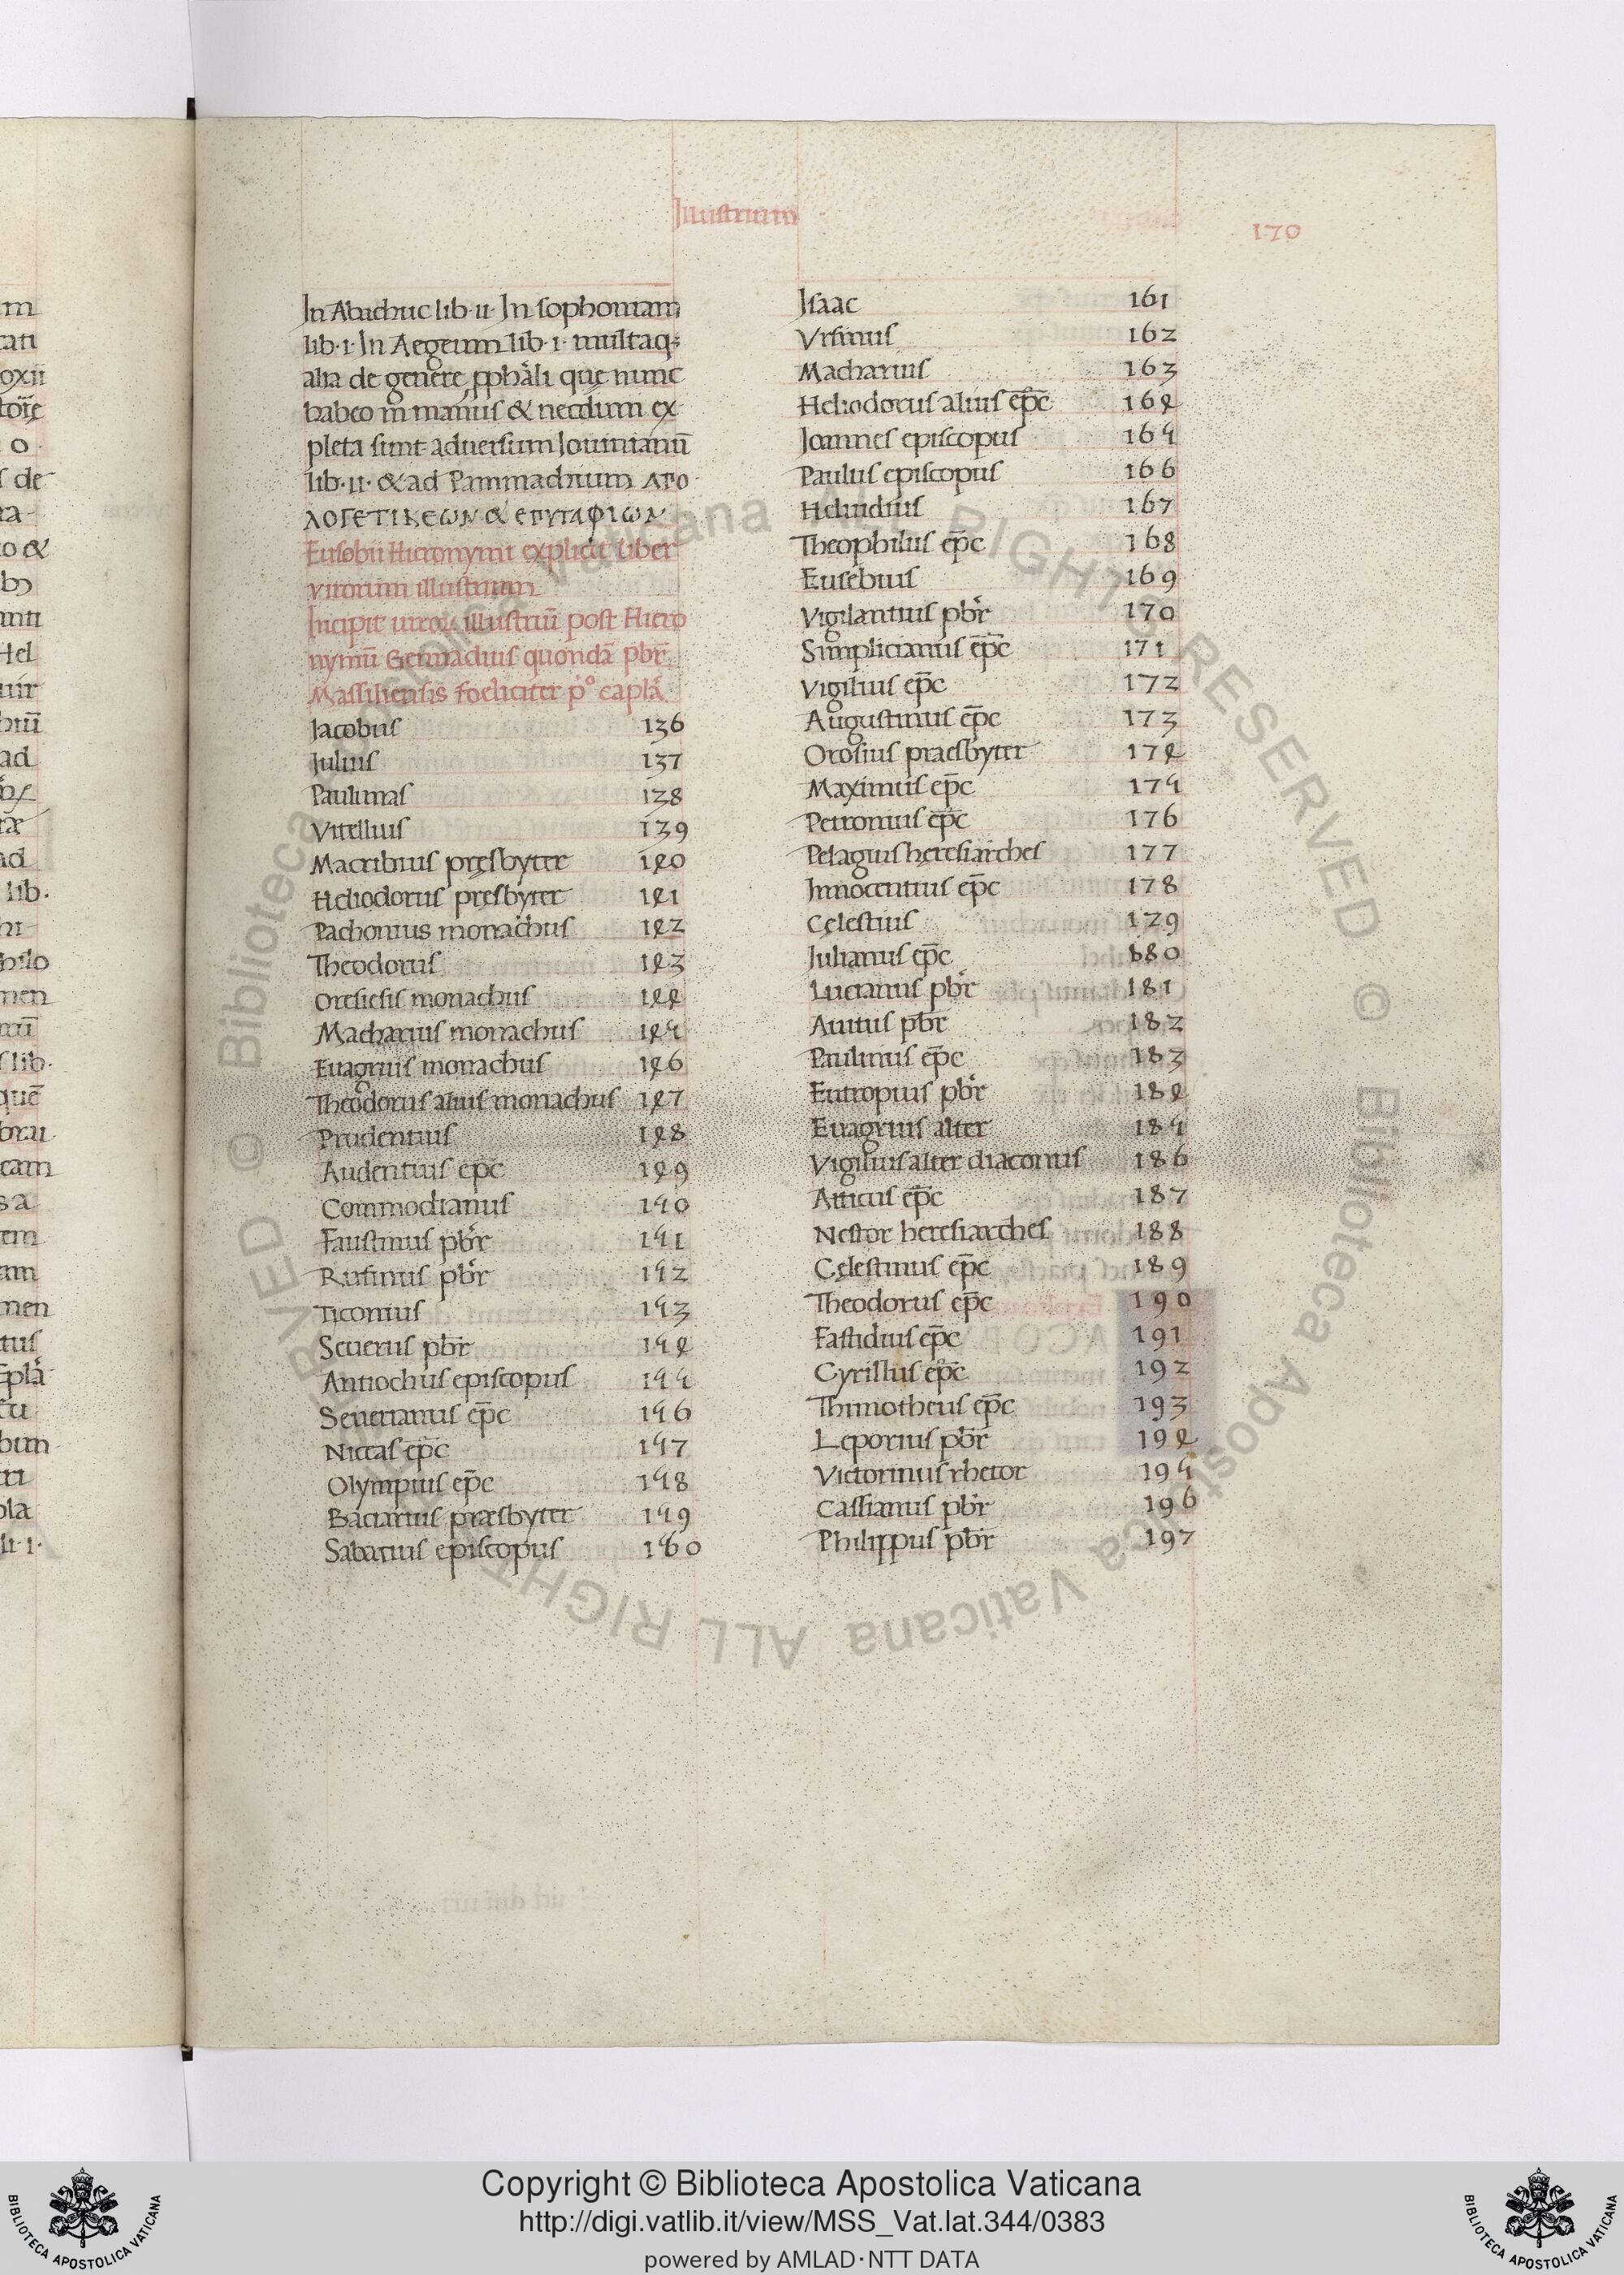 Illustrium
170
In Abachuc lib·ii· In sophoniam
lib·i· In Aegeum lib·i· multaq;
alia de genere ꝓphāli quę nunc
habeo in manus & necdum ex
pleta sunt aduersum Iouinianū
lib·ii· & ad Pammachium ΑΓΟ
ΛΟΓΕΤΙΚΕωΝ & ΕΠΥΤΑΦΙωΝ
Eusebii Hieronymi explicit liber
virorum illustrium
Incipit uiroꝝ illustriū post Hiero
nymū Gennadius quondā pbr̄
Massiliensis foeliciter p° caplā
Iacobus 136
Iulius 137
Paulinas 138
Vitellius 139
Macribius pręsbyter 140
Heliodorus pręsbyter 141
Pachonius monachus 142
Theodorus 143
Oresiesis monachus 144
Macharius monachus 145
Euagrius monachus 146
Theodorus alius monachus 147
Prudentius 148
Audentius ep̄c 149
Commodianus 150
Faustinus pbr̄ 151
Rufinus pbr̄ 152
Ticonius 153
Seuerus pbr̄ 154
Antiochus episcopus 155
Seuerianus ep̄c 156
Niceas ep̄c 157
Olympius ep̄c 158
Baciarius præsbyter 159
Sabatius episcopus 160
Isaac 161
Vrsinus 162
Macharius 163
Heliodorus alius ep̄c 164
Joannes episcopus 165
Paulus episcopus 166
Heluidius 167
Theophilus ep̄c 168
Eusebius 169
Vigilantius pbr̄ 170
Simplicianus ep̄c 171
Vigilius ep̄c 172
Augustinus ep̄c 173
Orosius praesbyter 174
Maximus ep̄c 175
Petronius ep̄c 176
Pelagius heresiarches 177
Innocentius ep̄c 178
Cęlestius 179
Iulianus ep̄c 180
Lucianus pbr̄ 181
Auitus pbr̄ 182
Paulinus ep̄c 183
Eutropius pbr̄ 184
Euagrius alter 185
Vigilius alter diaconus 186
Atticus ep̄c 187
Nestor heresiarches 188
Cęlestinus ep̄c 189
Theodorus ep̄c 190
Fastidius ep̄c 191
Cyrillus ep̄c 192
Thimotheus ep̄c 193
Leporius pbr̄ 194
Victorinus rhetor 195
Cassianus pbr̄ 196
Philippus pbr̄ 197
Copyright © Biblioteca Apostolica Vaticana
http://digi.vatlib.it/view/MSS_Vat.lat.344/0383
powered by AMLAD·NTT DATA
BIBLIOTECA APOSTOLICA VATICANA
BIBLIOTECA APOSTOLICA VATICANA